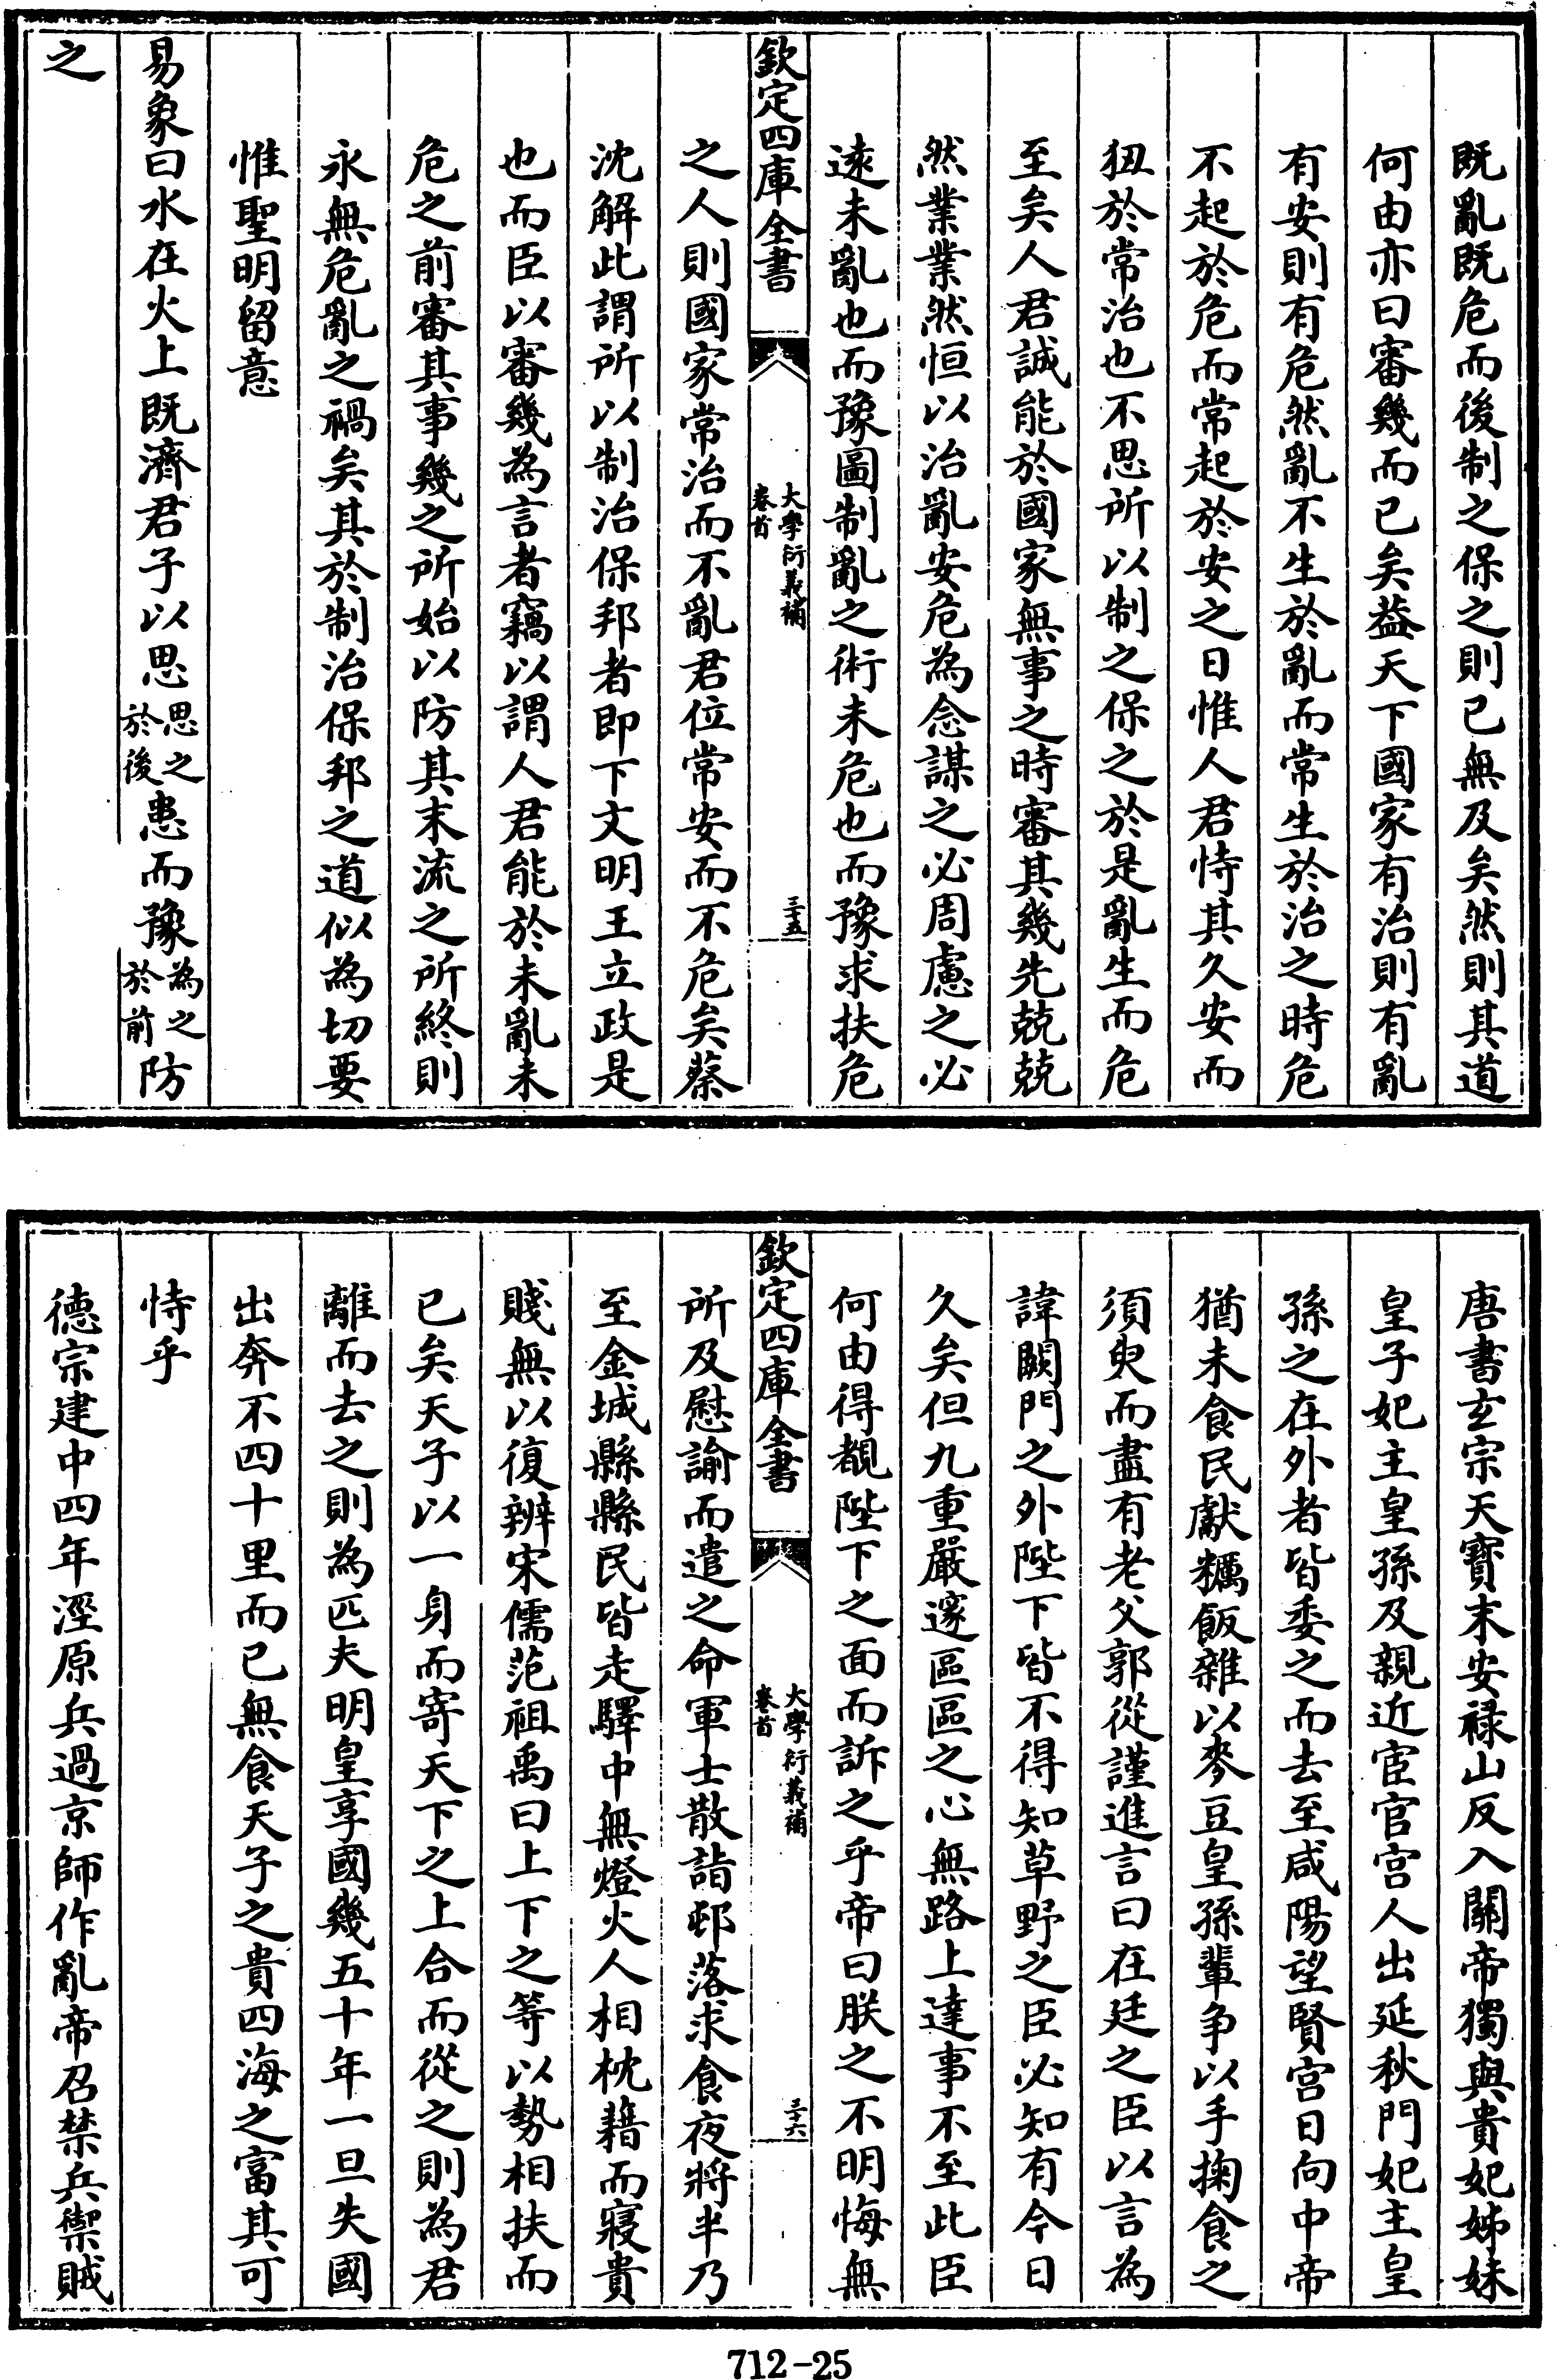 既亂既危而後制之保之則已無及矣然則其道
何由亦曰審幾而已矣葢天下國家有治則有亂
有安則有危然亂不生於亂而常生於治之時危
不起於危而常起於安之日惟人君恃其久安而
狃於常治也不思所以制之保之於是亂生而危
至矣人君誠能於國家無事之時審其幾先兢兢
然業業然恒以治亂安危為念謀之必周慮之必
逺未亂也而豫圖制亂之術未危也而豫求扶危
欽定四庫全書
大學衍義補
卷首
三十五
之人則國家常治而不亂君位常安而不危矣蔡
沈解此謂所以制治保邦者即下文明王立政是
也而臣以審幾為言者竊以謂人君能於未亂未
危之前審其事幾之所始以防其末流之所終則
永無危亂之禍矣其於制治保邦之道似為切要
惟聖明留意
易象曰水在火上既濟君子以思思之於後患而豫為之於前防
之
唐書玄宗天寳末安禄山反入關帝獨與貴妃姊妹
皇子妃主皇孫及親近宦官宫人出延秋門妃主皇
孫之在外者皆委之而去至咸陽望賢宫日向中帝
猶未食民獻糲飯雜以麥豆皇孫輩争以手掬食之
須臾而盡有老父郭從謹進言曰在廷之臣以言為
諱闕門之外陛下皆不得知草野之臣必知有今日
久矣但九重嚴邃區區之心無路上達事不至此臣
何由得覩陛下之面而訴之乎帝曰朕之不明悔無
欽定四庫全書
大學衍義補
卷首
三十六
所及慰諭而遣之命軍士散詣邨落求食夜將半乃
至金城縣縣民皆走驛中無燈火人相枕藉而寢貴
賤無以復辨宋儒范祖禹曰上下之等以勢相扶而
已矣天子以一身而寄天下之上合而從之則為君
離而去之則為匹夫明皇享國幾五十年一旦失國
出奔不四十里而已無食天子之貴四海之富其可
恃乎
德宗建中四年涇原兵過京師作亂帝召禁兵禦賊
712-25